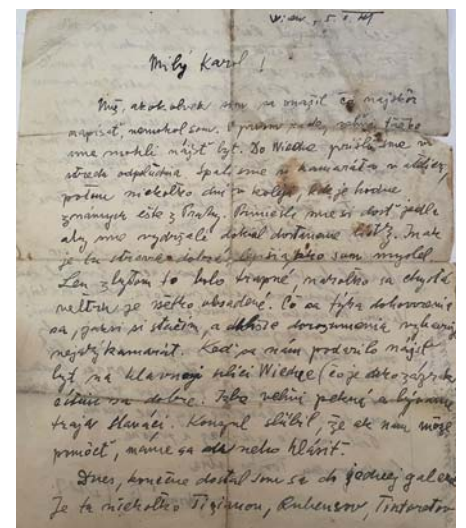 Wien, 5. 
Milý Karol!
akokoľvek som sa snažil čo najskôr
napísať, nemohol som. V prvom rade, veľmi ťažko
sme mohli nájsť byt. Do Wiedne prišli sme v
stredu odpoludnia. Spali sme u kamaráta v ateliéri,
potom niekoľko dní v koleji, kde je hodne
známych ešte z Prahy. Priniesli sme si dosť jedla
aby sme vydržali dokiaľ dostaneme lístky. Inak
je tu strava dobrá, lepšia ako som myslel.
Len s bytom to bolo trapné, nakoľko sa chystá
veľtrh je všetko obsadené. Čo sa týka dohovorenia
sa, 
kamarát. Keď sa nám podarilo nájsť
byt na hlavnej ulici Wiedne (čo je ako zázrak)
sa dobre. Izba veľmi pekná a bývame
traja Slováci. Konzul slúbil, že ak nám môže
pomôcť, máme sa u neho hlásiť.
Dnes, konečne dostal som sa do jednej galerie
Je tu niekoľko Tizianov, Rubensov, Tintoretov